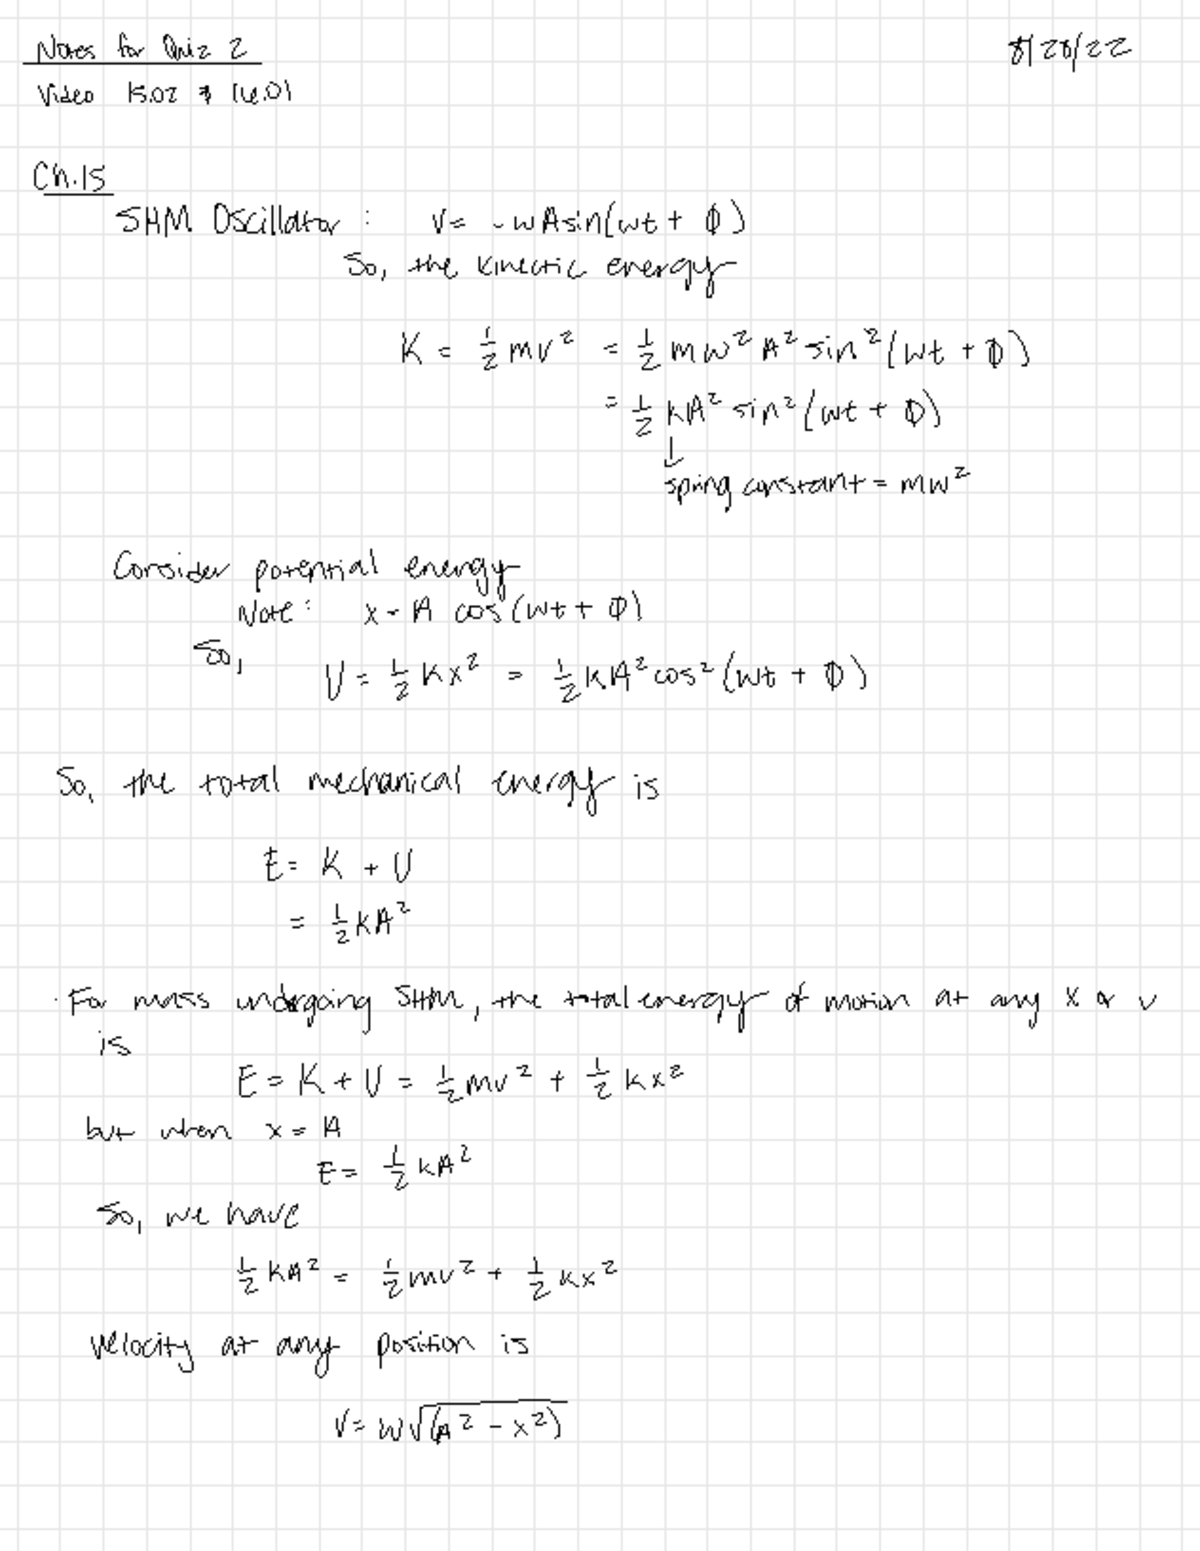 Notes for Quiz 2
8/28/22
Video 15.02 & 16.01
Ch.15
SHM Oscillator: v = -ωA sin(ωt + Φ)
So, the kinectic energy
K = ½ mv² = ½ mω² A² sin² (ωt + Φ)
= ½ kA² sin² (ωt + Φ)
↓
spring constant = mω²
Consider potential energy
Note: x = A cos (ωt + Φ)
So,
U = ½ kx² = ½ kA² cos² (ωt + Φ)
So, the total mechanical energy is
E = K + U
= ½ kA²
· For mass undergoing SHM, the total energy of motion at any x or v
is
E = K + U = ½ mv² + ½ kx²
but when x = A
E = ½ kA²
So, we have
½ kA² = ½ mv² + ½ kx²
velocity at any position is
v = ω√(A² - x²)